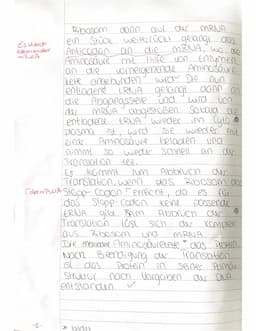 Ribosom dann auf der mRNA
ein Stück weiterrückt gelangt das
Anticodon an die mRNA, wo die
Aminosäure mit Hilfe von Enzymen
an die vorhergehende Aminosäure
angebunden wird. Die nun
entladene tRNA gelangt dann an
die Abgangsstelle und wird von
der mRNA abgestoßen. Sobald die
entladene tRNA wieder im Cyto-
plasma ist, wird sie wieder mit
eine Aminosäure beladen und
nimmt so wieder schnell an die
Translation teil.
Es kommt zum Abbruch der
Translation, wenn das Ribosom das
Stopp-Codon erreicht, da es für
das Stopp-Codon keine passende
tRNA gibt. Beim Abbruch der
Translation löst sich der Komplex
aus Ribosom und mRNA.
Die Aminosäurekette * das Protein.
Nach Beendigung der Translation
ist das Protein in seiner Primär-
Struktur nach Vorgaben der DNA
entstanden. ✓
-2-
* bildet